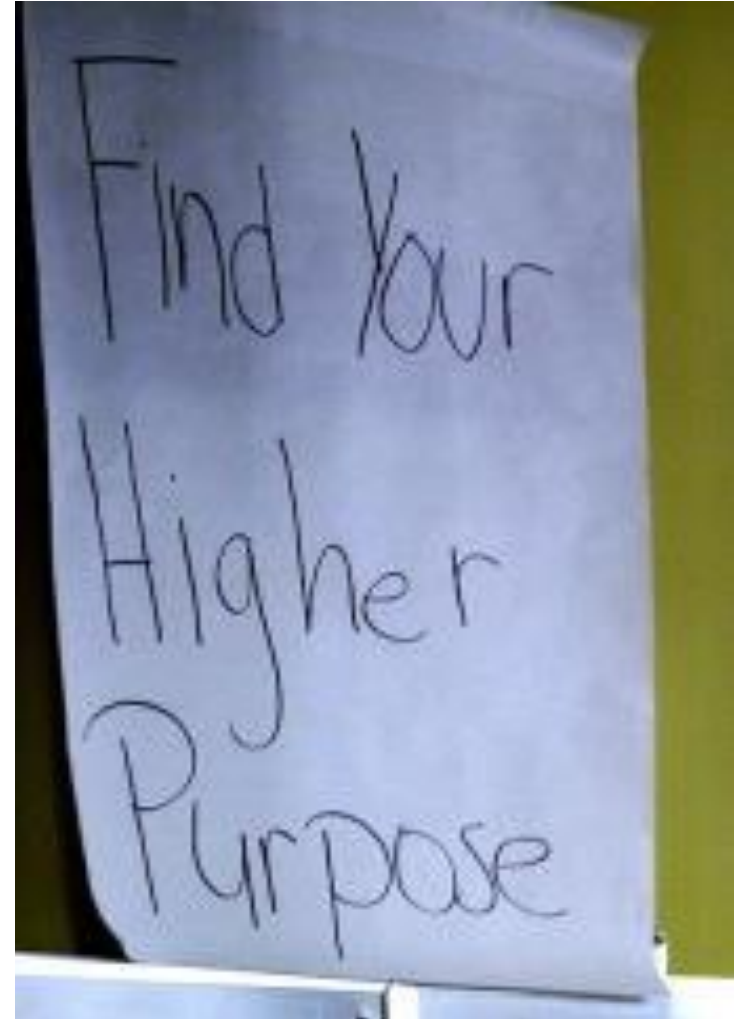 Find Your
Higher
Purpose